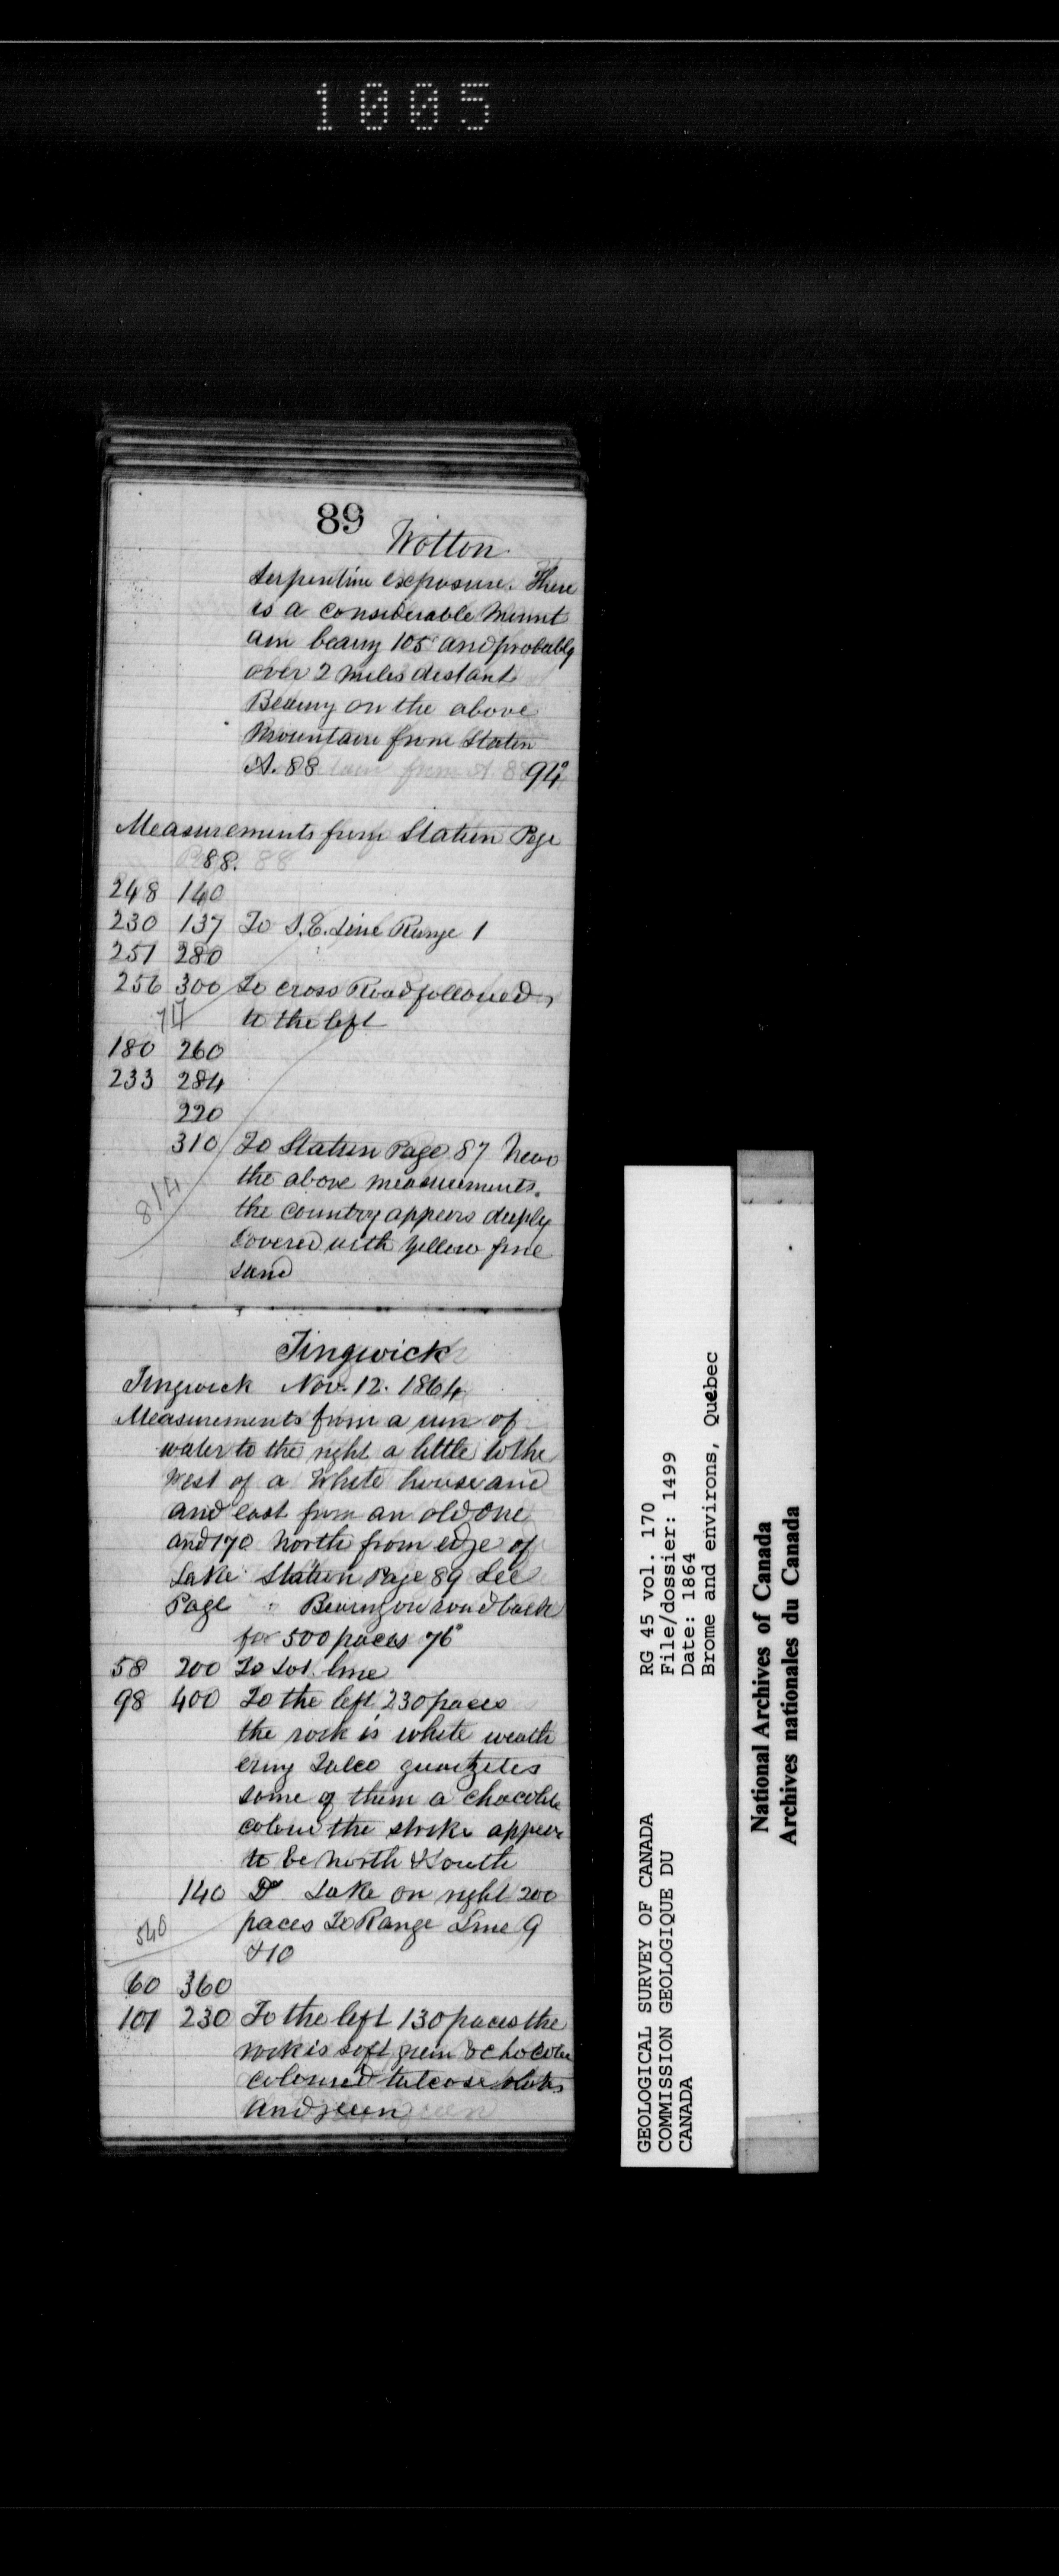 1005
89
Wotton
Serpentine exposure. There
is a considerable Mount
ain bearing 105° and probably
over 2 miles distant
Bearing on the above
Mountain from Station
A. 88 94°
Measurements from Station Page
88.
248 140
230 137 To S.E. Line Range 1
251 280
256 300 To cross Road followed
717 to the left
180 260
233 284
220
310 To Station Page 87 Near
the above measurements
814 the country appears deeply
Covered with yellow fine
sand
Tingwick
Tingwick Nov. 12. 1864
Measurements from a run of
water to the right a little to the
West of a White house and
and east from an old one
and 170 North from edge of
Lake Station Page 89 See
Page Bearing on road back
for 500 paces 76°
58 200 To Lot line
98 400 To the left 230 paces
the rock is white weath
ering Talco quartzites
some of them a chocolate
colour the strike appears
to be North & South
140 Do Lake on right 200
540 paces To Range Line 9
& 10
60 360
101 230 To the left 130 paces the
rock is soft green & chocolate
coloured talcose slates
and green
GEOLOGICAL SURVEY OF CANADA
COMMISSION GEOLOGIQUE DU
CANADA
RG 45 vol. 170
File/dossier: 1499
Date: 1864
Brome and environs, Quebec
National Archives of Canada
Archives nationales du Canada